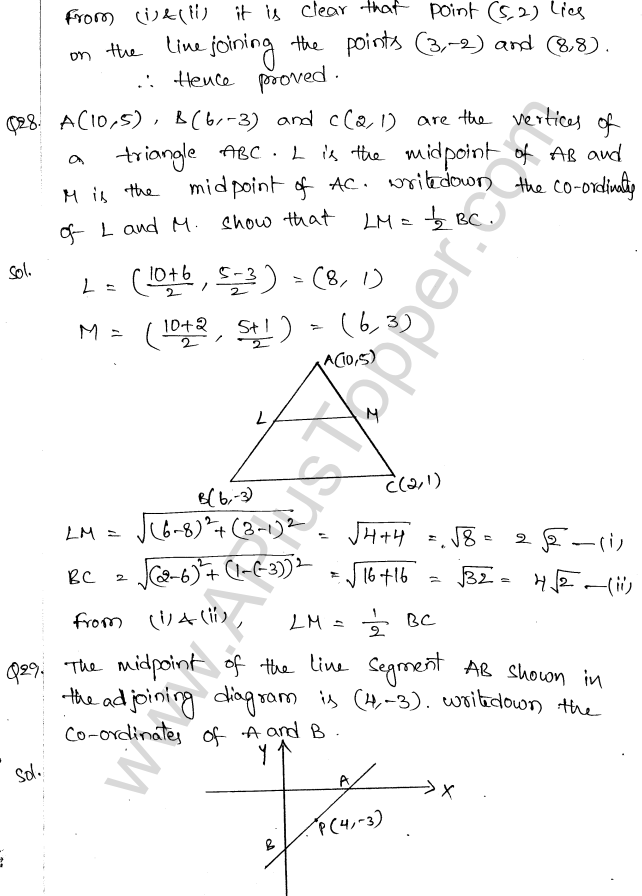 From (i) & (ii) it is clear that point (5,2) lies
on the line joining the points (3,-2) and (8,8).
∴ Hence proved.
Q28. A(10,5), B(6,-3) and C(2,1) are the vertices of
a triangle ABC. L is the midpoint of AB and
M is the midpoint of AC. writedown the co-ordinates
of L and M. show that LM = 1/2 BC.
Sol.
L = (10+6/2, 5-3/2) = (8, 1)
M = (10+2/2, 5+1/2) = (6, 3)
A(10,5)
L M
B(6,-3) C(2,1)
LM = √(6-8)²+(3-1)² = √4+4 = √8 = 2√2 — (i)
BC = √(2-6)²+(1-(-3))² = √16+16 = √32 = 4√2 — (ii)
From (i) & (ii), LM = 1/2 BC
Q29. The midpoint of the line segment AB shown in
the adjoining diagram is (4,-3). writedown the
co-ordinates of A and B.
Sol.
Y
A
X
P(4,-3)
B
www.APlusTopper.com